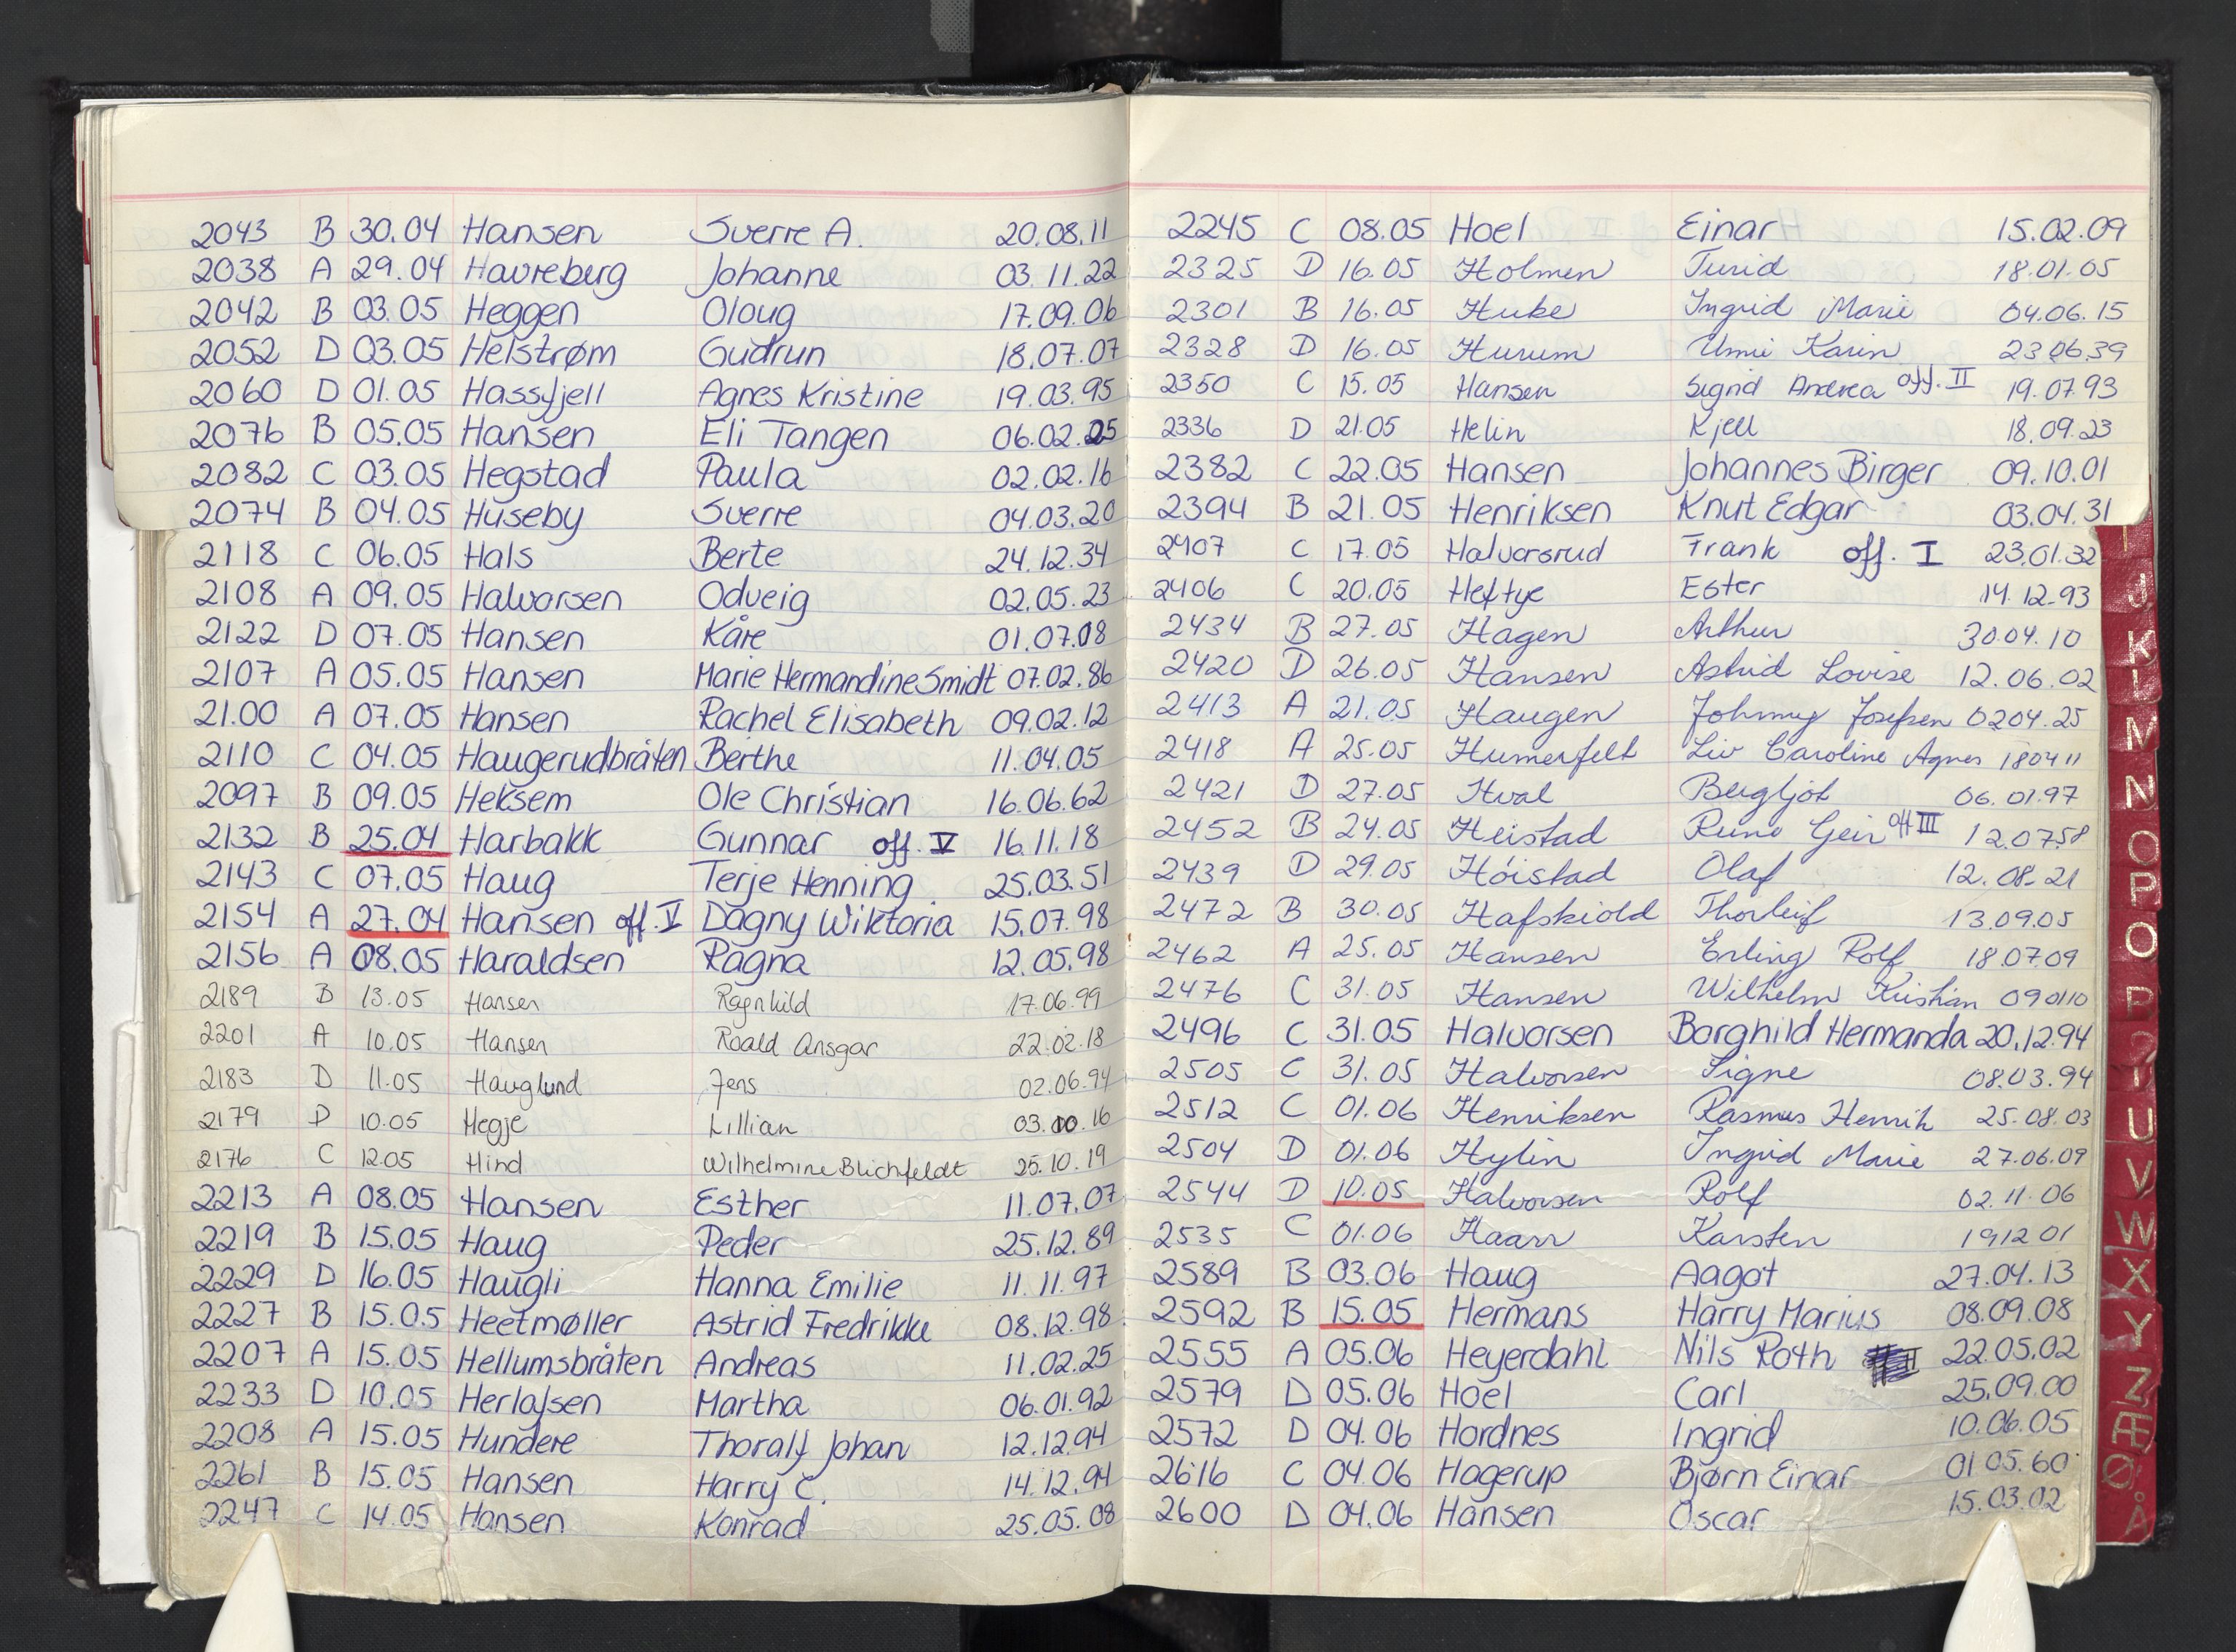 2043 B 30.04 Hansen Sverre A. 20.08.11
2038 A 29.04 Havreberg Johanne 03.11.22
2042 B 03.05 Heggen Olaug 17.09.06
2052 D 03.05 Helstrøm Gudrun 18.07.07
2060 D 01.05 Hassfjell Agnes Kristine 19.03.95
2076 B 05.05 Hansen Eli Tangen 06.02.25
2082 C 03.05 Hegstad Paula 02.02.16
2074 B 04.05 Huseby Sverre 04.03.20
2118 C 06.05 Hals Berte 24.12.34
2108 A 09.05 Halvorsen Odveig 02.05.23
2122 D 07.05 Hansen Kåre 01.07.08
2107 A 05.05 Hansen Marie Hermandine Smidt 07.02.86
21.00 A 07.05 Hansen Rachel Elisabeth 09.02.12
2110 C 04.05 Haugerudbråten Berthe 11.04.05
2097 B 09.05 Heksem Ole Christian 16.06.62
2132 B 25.04 Harbakk Gunnar off. V 16.11.18
2143 C 07.05 Haug Terje Henning 25.03.51
2154 A 27.04 Hansen off. V Dagny Wiktoria 15.07.98
2156 A 08.05 Haraldsen Ragna 12.05.98
2189 B 13.05 Hansen Ragnhild 17.06.99
2201 A 10.05 Hansen Roald Ansgar 22.02.18
2183 D 11.05 Hauglund Jens 02.06.94
2179 D 10.05 Hegje Lillian 03.10.16
2176 C 12.05 Hind Wilhelmine Blichfeldt 25.10.19
2213 A 08.05 Hansen Esther 11.07.07
2219 B 15.05 Haug Peder 25.12.89
2229 D 16.05 Haugli Hanna Emilie 11.11.97
2227 B 15.05 Heetmøller Astrid Fredrikke 08.12.98
2207 A 15.05 Hellumsbråten Andreas 11.02.25
2233 D 10.05 Herlofsen Martha 06.01.92
2208 A 15.05 Hundere Thoralf Johan 12.12.94
2261 B 15.05 Hansen Harry C. 14.12.94
2247 C 14.05 Hansen Konrad 25.05.08
2245 C 08.05 Hoel Einar 15.02.09
2325 D 16.05 Holmen Turid 18.01.05
2301 B 16.05 Huke Ingrid Marie 04.06.15
2328 D 16.05 Hurum Unni Karin 23.06.39
2350 C 15.05 Hansen Sigrid Andrea off. II 19.07.93
2336 D 21.05 Helin Kjell 18.09.23
2382 C 22.05 Hansen Johannes Birger 09.10.01
2394 B 21.05 Henriksen Knut Edgar 03.04.31
2407 C 17.05 Halvorsrud Frank off. I 23.01.32
2406 C 20.05 Heftye Ester 14.12.93
2434 B 27.05 Hagen Arthur 30.04.10
2420 D 26.05 Hansen Astrid Lovise 12.06.02
2413 A 21.05 Haugen Johnny Josefsen 0204.25
2418 A 25.05 Humerfelt Liv Caroline Agnes 180411
2421 D 27.05 Hval Bergljot 06.01.97
2452 B 24.05 Heistad Rune Geir off III 12.0758
2439 D 29.05 Høistad Olaf 12.08.21
2472 B 30.05 Hafskiold Thorleif 13.09.05
2462 A 25.05 Hansen Erling Rolf 18.07.09
2476 C 31.05 Hansen Wilhelm Kristian 090110
2496 C 31.05 Halvorsen Borghild Hermanda 20.12.94
2505 C 31.05 Halvorsen Signe 08.03.94
2512 C 01.06 Henriksen Rasmus Henrik 25.08.03
2504 D 01.06 Hylin Ingrid Marie 27.06.09
2544 D 10.05 Halvorsen Rolf 02.11.06
2535 C 01.06 Haarr Karsten 1912 01
2589 B 03.06 Haug Aagot 27.04.13
2592 B 15.05 Hermans Harry Marius 08.09.08
2555 A 05.06 Heyerdahl Nils Roth 22.05.02
2579 D 05.06 Hoel Carl 25.09.00
2572 D 04.06 Hordnes Ingrid 10.06.05
2616 C 04.06 Hagerup Bjørn Einar 01 05.60
2600 D 04.06 Hansen Oscar 15.03.02
I
J
K
L
M
N
O
P
Q
U
V
W
X
Y
Z
Æ
Ø
Å